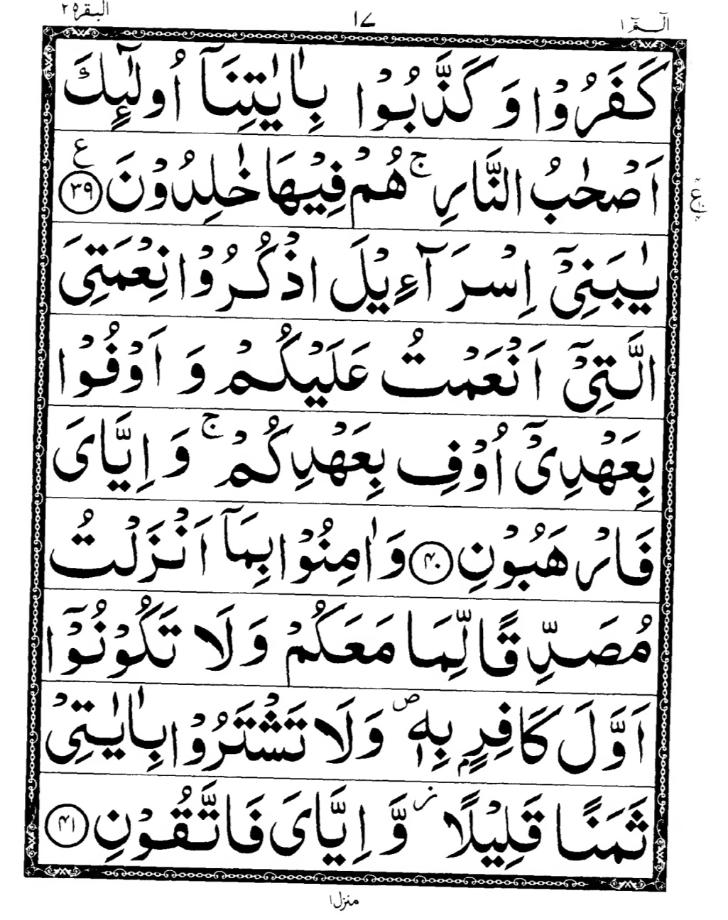 الٓمّٓ ١ ١٧ البقرة ٢
كَفَرُوْا وَكَذَّبُوْا بِاٰيٰتِنَاۤ اُولٰٓئِكَ
اَصْحٰبُ النَّارِ ۚ هُمْ فِيْهَا خٰلِدُوْنَ ﴿٣٩﴾ ع
يٰبَنِيْۤ اِسْرَآءِيْلَ اذْكُرُوْا نِعْمَتِيَ
الَّتِيْۤ اَنْعَمْتُ عَلَيْكُمْ وَ اَوْفُوْا
بِعَهْدِيْۤ اُوْفِ بِعَهْدِكُمْ ۚ وَ اِيَّايَ
فَارْهَبُوْنِ ﴿٤٠﴾ وَاٰمِنُوْا بِمَاۤ اَنْزَلْتُ
مُصَدِّقًا لِّمَا مَعَكُمْ وَلَا تَكُوْنُوْۤا
اَوَّلَ كَافِرٍۭ بِهٖ ۪ وَلَا تَشْتَرُوْا بِاٰيٰتِيْ
ثَمَنًا قَلِيْلًا ؗ وَّ اِيَّايَ فَاتَّقُوْنِ ﴿٤١﴾
منزل ١